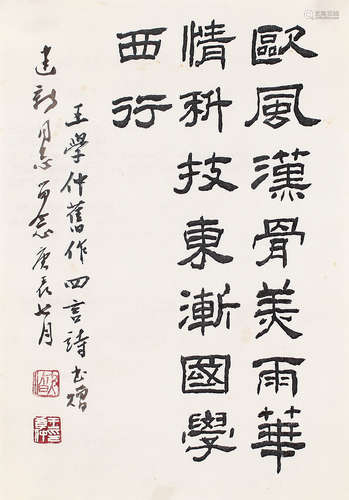 歐風漢骨美雨華
情科技東漸國學
西行
王學仲舊作四言詩書贈
建新同志留念庚辰七月